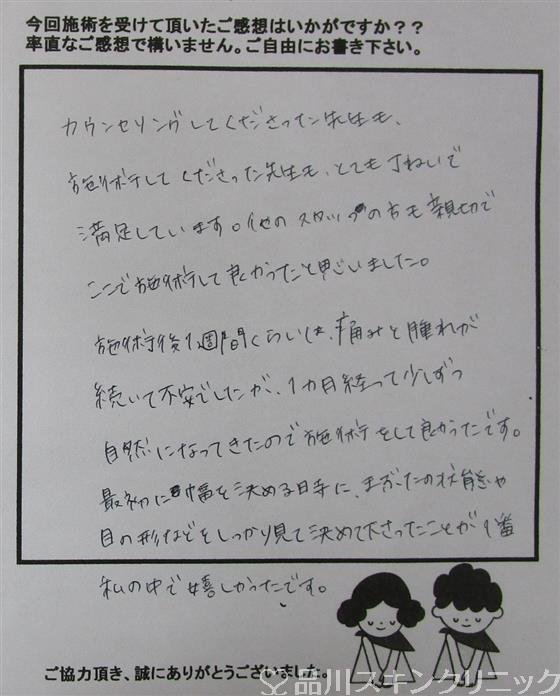 今回施術を受けて頂いたご感想はいかがですか??
率直なご感想で構いません。ご自由にお書き下さい。
カウンセリングしてくださった先生も、
施術してくださった先生も、とても丁ねいで
満足しています。他のスタッフの方も親切で
ここで施術して良かったと思いました。
施術後1週間くらいは、痛みと腫れが
続いて不安でしたが、1カ月経って少しずつ
自然になってきたので施術をして良かったです。
最初に幅を決める時に、まぶたの状態や
目の形などをしっかり見て決めて下さったことが1番
私の中で嬉しかったです。
ご協力頂き、誠にありがとうございました。
品川スキンクリニック